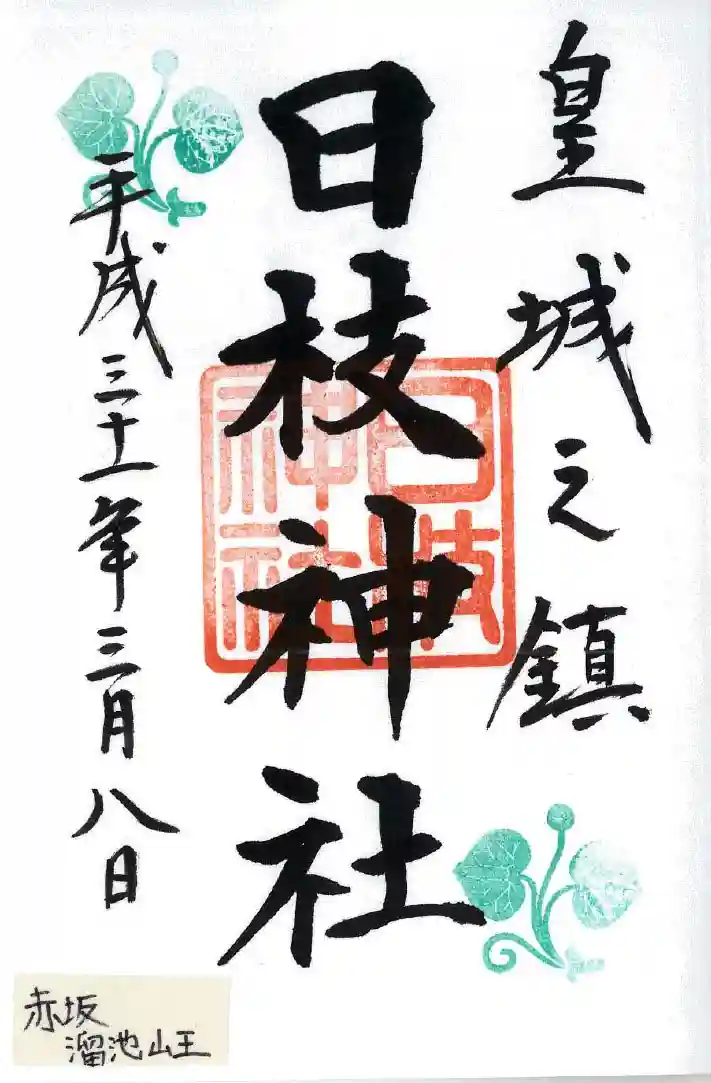 皇城之鎮
日枝神社
日枝
神社
平成三十一年三月八日
赤坂
溜池山王